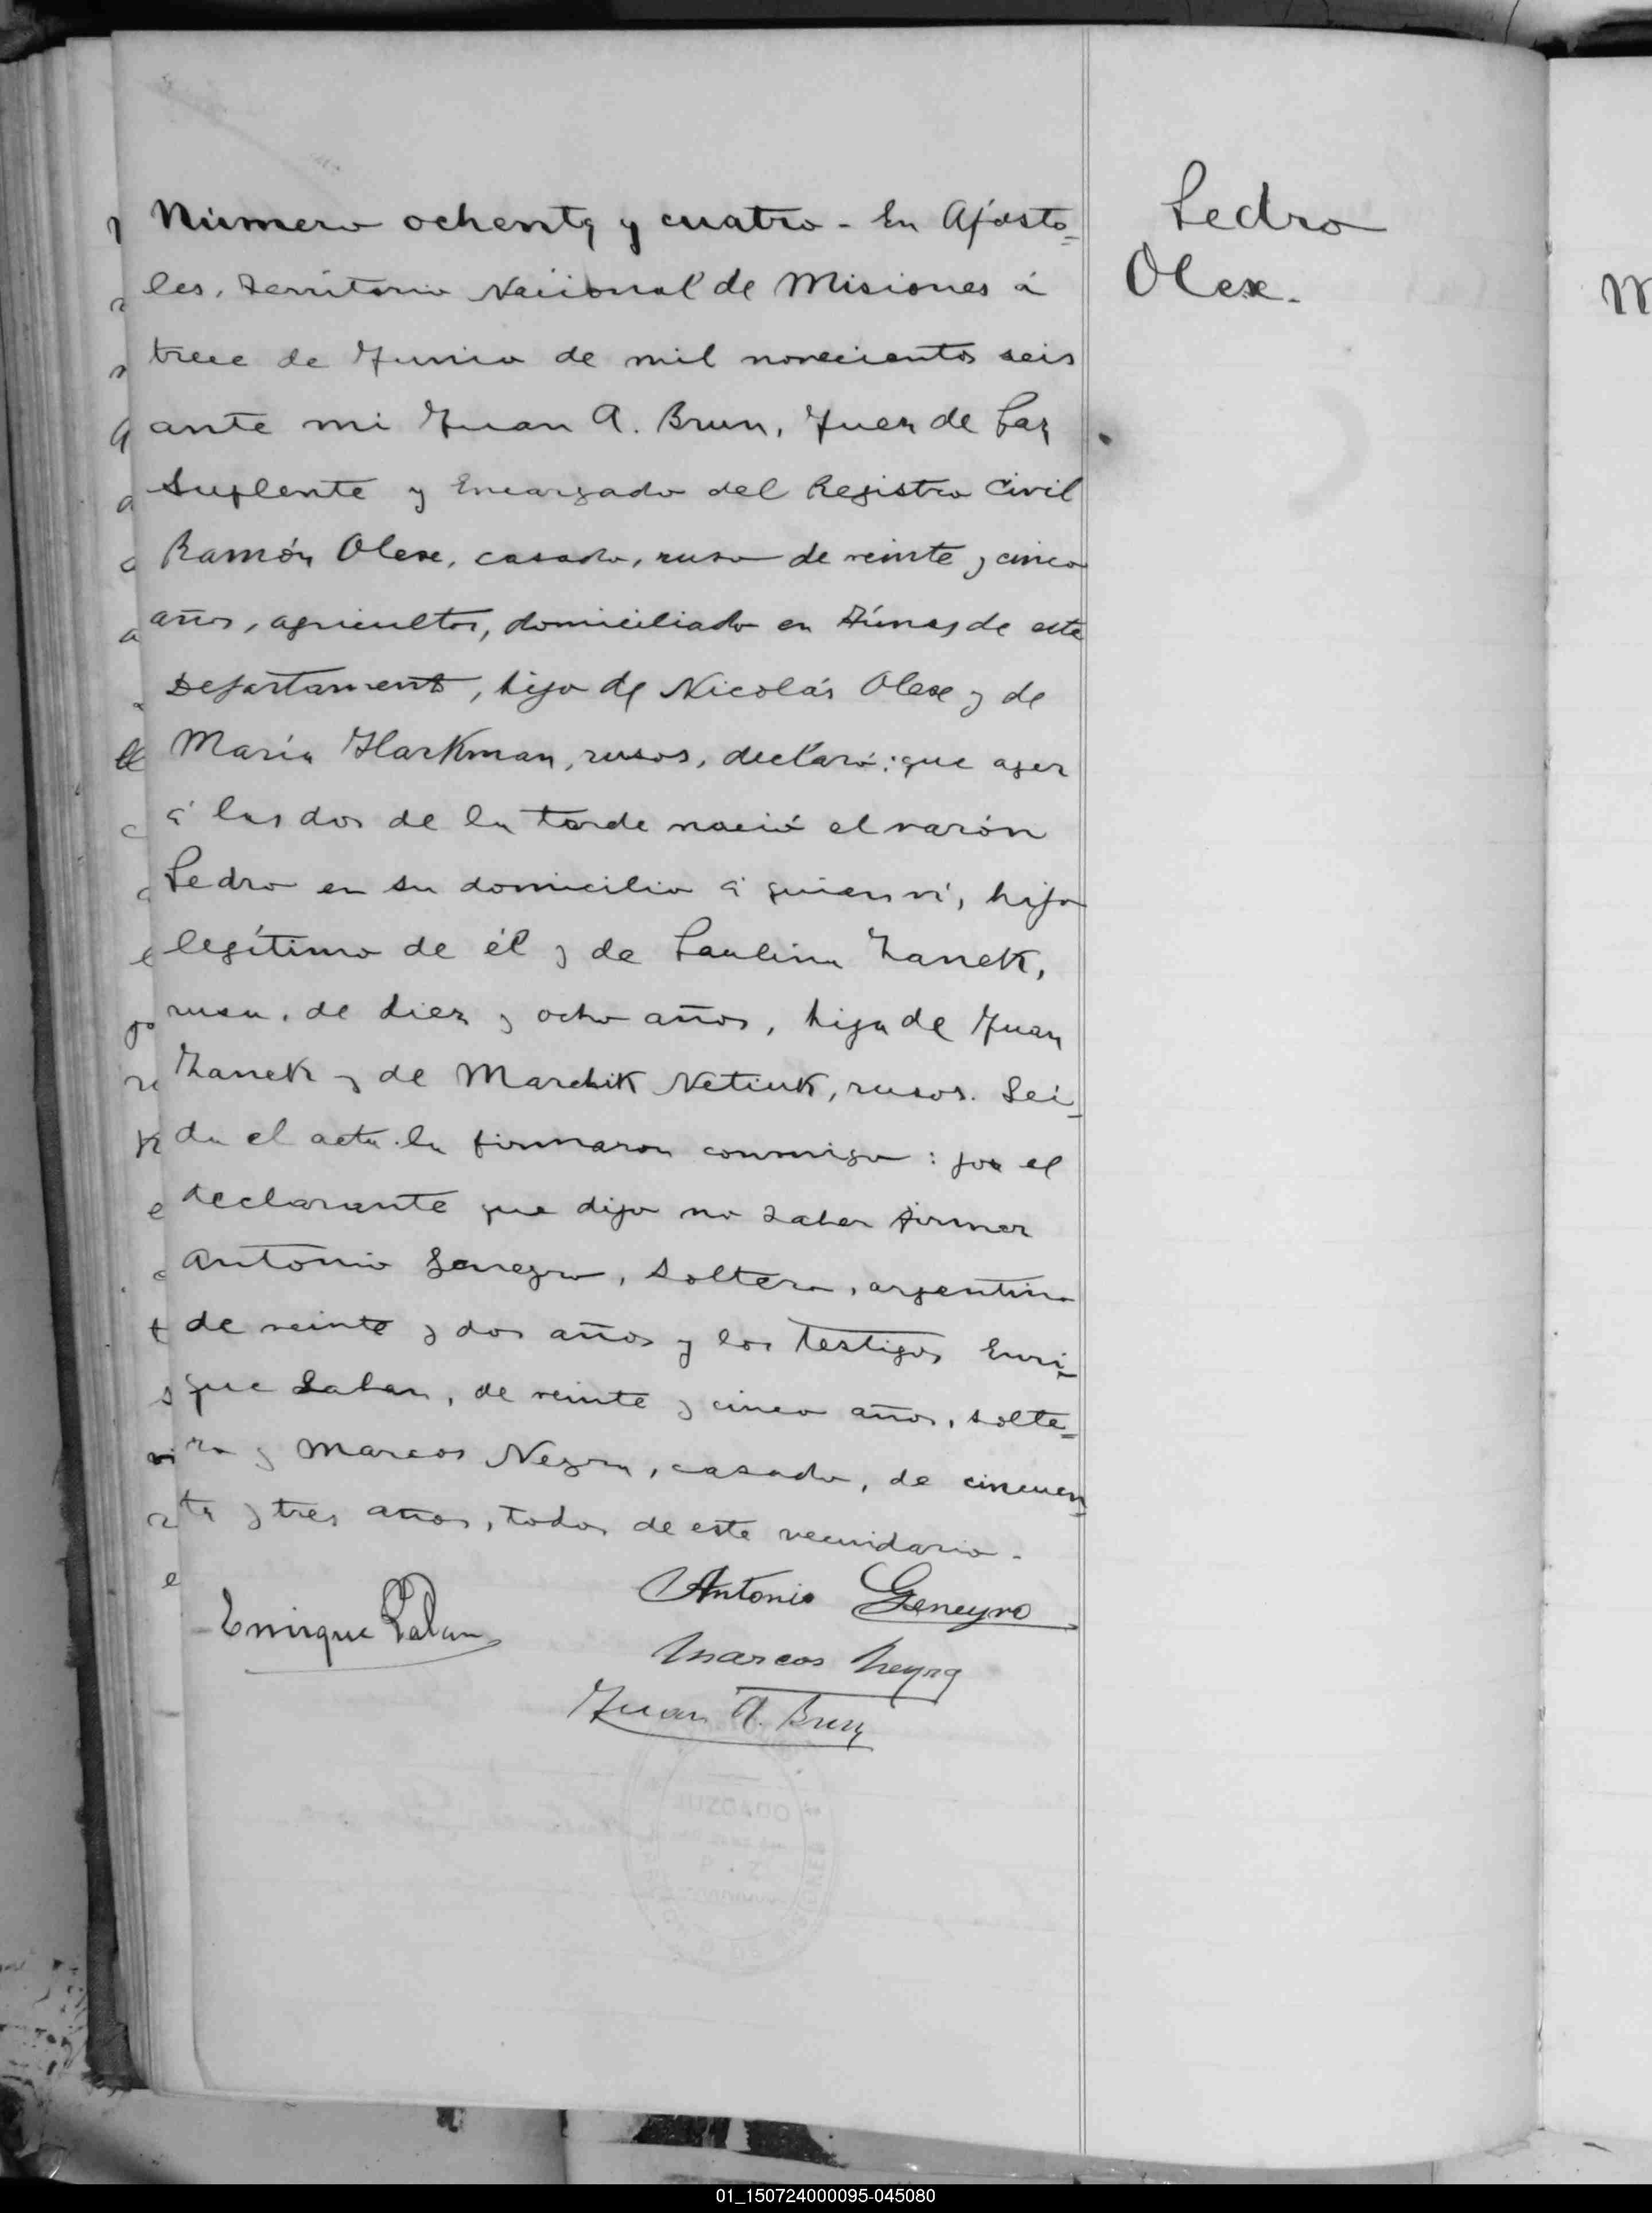 Número ochenta y cuatro - En Aposto=
les, Territorio Nacional de Misiones á
trece de Junio de mil novecientos seis
ante mi Juan A. Brun, Juez de Paz
Suplente y Encargado del Registro Civil
Ramón Olexe, casado, ruso de veinte y cinco
años, agricultor, domiciliado en de este
Departamento, hijo de Nicolás Olexe y de
María Harkman, rusos, declaró: que ayer
á las dos de la tarde nació el varón
Pedro en su domicilio á quien ví, hijo
legítimo de él y de Paulina Zanek,
rusa, de diez y ocho años, hija de Juan
Zanek y de Marchik Netiuk, rusos. Leí-
da el acta la firmaron conmigo: por el
declarante que dijo no saber firmar
Antonio Geneyro, soltero, argentino
de veinte y dos años y los testigos Enri-
que Laban, de veinte y cinco años, solte=
ro y Marcos Neyra, casado, de cincuen=
ta y tres años, todos de este vecindario -
Antonio Geneyro
Enrique
Marcos Neyra
Juan A. Brun
Pedro
Olexe.
01_150724000095-045080